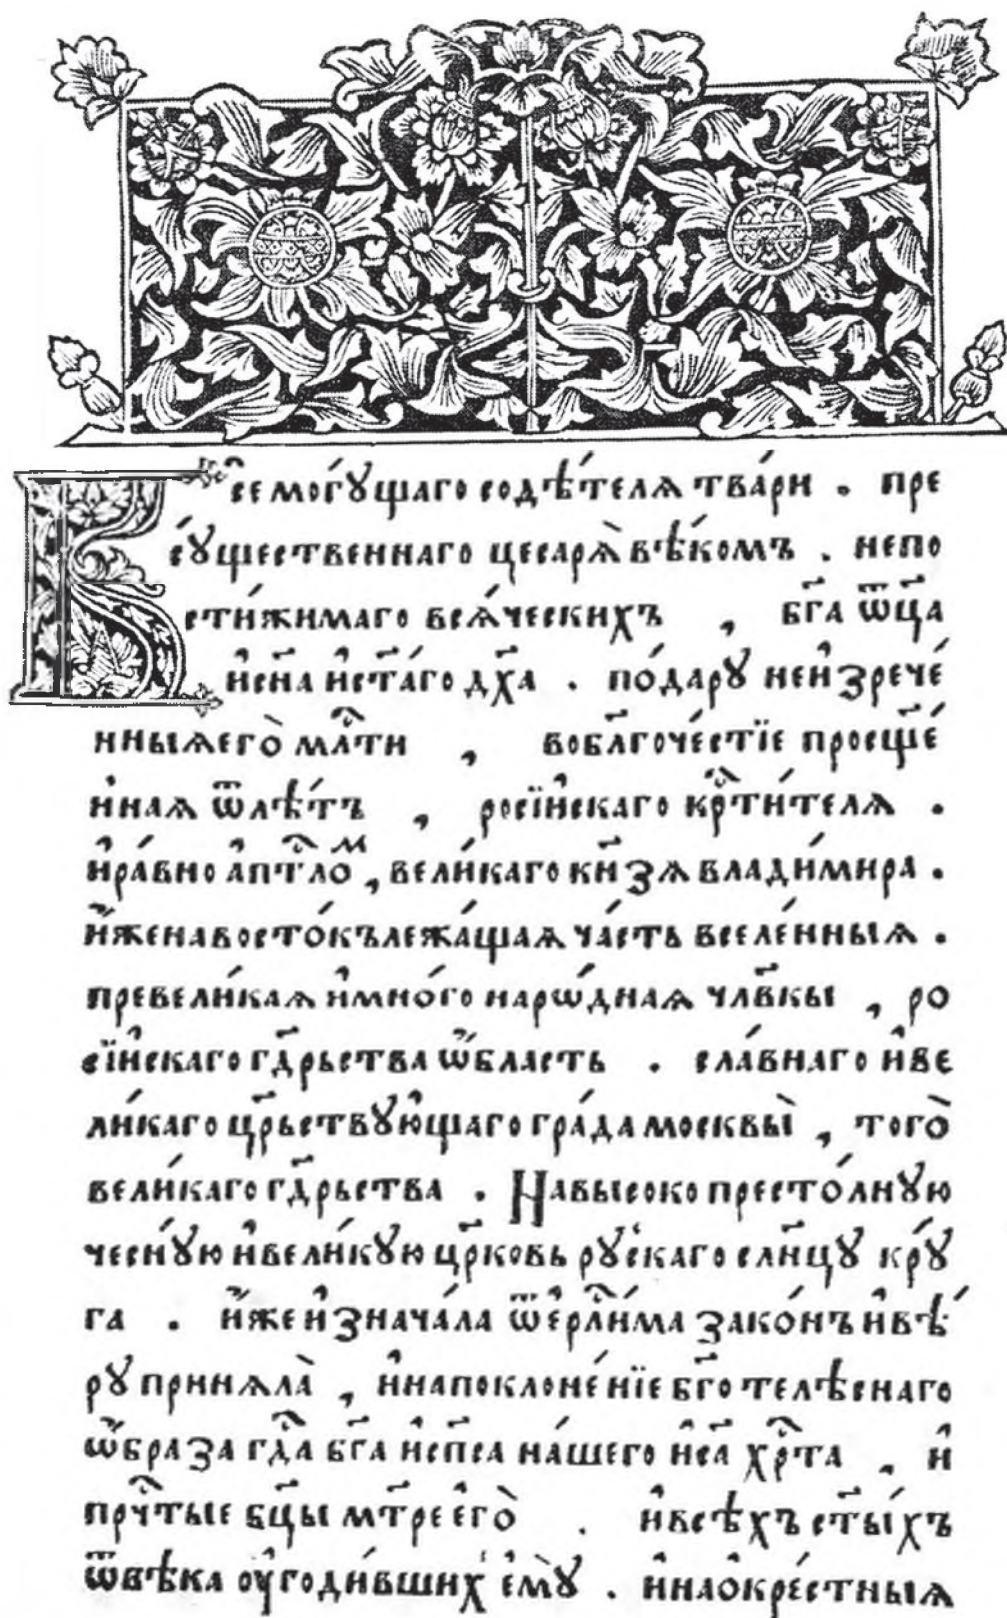 Всемогꙋ́щаго содѣ́телѧ тва́ри . пре
сꙋ́щественнаго цесарѧ̀ вѣ́комъ . непо
сти́жимаго всѧ́ческихъ , бг҃а ѿц҃а
и҆ сн҃а и҆ ст҃а́го дх҃а . по́ дарꙋ неи҆зрече́
нныѧ его̀ мл҃ти , во бл҃гоче́стїе просще҃́
нная ѿ лѣ́тъ , росїи҆скаго крⷭ҇ти́телѧ .
и҆ ра́вно а҆пⷭ҇тлоⷨ , вели́каго кн҃зѧ влади́мира .
и҆́же на восто́къ лежа́щаѧ ча́сть вселе́нныѧ .
превели́каѧ и҆ мно́го наро́днаѧ чл҃вки , ро
сїи҆скаго гд҃рьства ѡ҆́бласть . сла́внаго и҆ ве
ли́каго цр҃ьствꙋю҆щаго гра́да москвы̀ , того̀
вели́каго гд҃рьства . На высоко престо́лнꙋю
чеснꙋ́ю и҆ вели́кꙋю цр҃ковь рꙋ́скаго сл҃нцꙋ крꙋ́
га . и҆́же и҆знача́ла ѿ е҆рⷭ҇ли́ма зако́нъ и҆ вѣ́
рꙋ принѧла̀ , и҆ на поклоне́нїе бг҃отелѣснаго
ѡ҆́браза гⷭ҇да бг҃а и҆ сп҃са на́шего и҆с҃а хрⷭ҇та , и҆
прⷱ҇тые бц҃ы мт҃ре е҆го̀ . и҆ всѣхъ ст҃ы́хъ
ѿ вѣка оу҆годи́вших е҆мꙋ̀ . и҆ на о҆кре́стныѧ